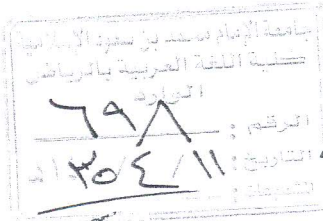 جامعة الإمام محمد بن سعود الإسلامية
كلية اللغة العربية بالرياض
الوارد
الرقم : ٦٩٨
التاريخ : ١١ / ٤ / ٣٥